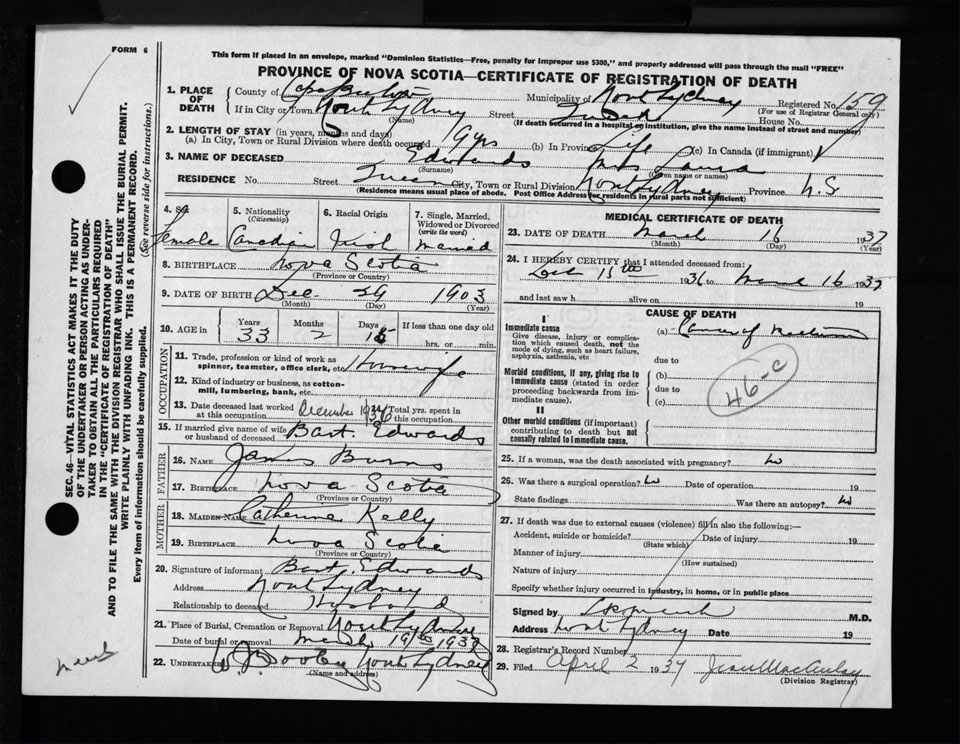 FORM 6
This form if placed in an envelope, marked "Dominion Statistics—Free, penalty for improper use $300," and properly addressed will pass through the mail "FREE"
PROVINCE OF NOVA SCOTIA—CERTIFICATE OF REGISTRATION OF DEATH
1. PLACE OF DEATH
County of Cape Breton Municipality of North Sydney Registered No. 159
(For use of Registrar General only)
If in City or Town North Sydney Street House No.
(Name) (If death occurred in a hospital or institution, give the name instead of street and number)
2. LENGTH OF STAY (in years, months and days)
(a) In City, Town or Rural Division where death occurred 19 yrs (b) In Province Life (c) In Canada (if immigrant)
3. NAME OF DECEASED Edwards Mrs Laura
(Surname) (Given name or names)
RESIDENCE No. Street City, Town or Rural Division North Sydney Province N.S
(Residence means usual place of abode. Post Office Address for residents in rural parts not sufficient)
4. Sex Female
5. Nationality (Citizenship) Canadian
6. Racial Origin Irish
7. Single, Married, Widowed or Divorced (write the word) Married
8. BIRTHPLACE Nova Scotia
(Province or Country)
9. DATE OF BIRTH Dec 29 1903
(Month) (Day) (Year)
10. AGE in Years 33 Months 2 Days If less than one day old hrs. or min.
OCCUPATION
11. Trade, profession or kind of work as spinner, teamster, office clerk, etc. Housewife
12. Kind of industry or business, as cotton-mill, lumbering, bank, etc.
13. Date deceased last worked at this occupation December 1936 Total yrs. spent in this occupation
15. If married give name of wife or husband of deceased Bart. Edwards
FATHER
16. NAME James Burns
17. BIRTHPLACE Nova Scotia
(Province or Country)
MOTHER
18. MAIDEN NAME Catherine Kelly
19. BIRTHPLACE Nova Scotia
(Province or Country)
20. Signature of informant Bart. Edwards
Address North Sydney
Relationship to deceased Husband
21. Place of Burial, Cremation or Removal North Sydney
Date of burial or removal March 19th 1937
22. UNDERTAKER North Sydney
(Name and address)
MEDICAL CERTIFICATE OF DEATH
23. DATE OF DEATH March 16 1937
(Month) (Day) (Year)
24. I HEREBY CERTIFY that I attended deceased from:
15th 1936 to 16 1937
and last saw h alive on 19
CAUSE OF DEATH
I
Immediate cause
Give disease, injury or complication which caused death, not the mode of dying, such as heart failure, asphyxia, asthenia, etc
(a) Cancer of Rectum
due to
Morbid conditions, if any, giving rise to immediate cause (stated in order proceeding backwards from immediate cause).
(b)
due to
(c)
46-c
II
Other morbid conditions (if important) contributing to death but not causally related to immediate cause.
25. If a woman, was the death associated with pregnancy? No
26. Was there a surgical operation? No Date of operation 19
State findings Was there an autopsy? No
27. If death was due to external causes (violence) fill in also the following:—
Accident, suicide or homicide? Date of injury 19
(State which)
Manner of injury
(How sustained)
Nature of injury
Specify whether injury occurred in industry, in home, or in public place
Signed by M.D.
Address North Sydney Date 19
28. Registrar's Record Number
29. Filed April 2 1937 Jean MacAulay
(Division Registrar)
SEC. 46—VITAL STATISTICS ACT MAKES IT THE DUTY
OF THE UNDERTAKER OR PERSON ACTING AS UNDER-
TAKER TO OBTAIN ALL THE PARTICULARS REQUIRED
IN THE "CERTIFICATE OF REGISTRATION OF DEATH"
AND TO FILE THE SAME WITH THE DIVISION REGISTRAR WHO SHALL ISSUE THE BURIAL PERMIT.
WRITE PLAINLY WITH UNFADING INK. THIS IS A PERMANENT RECORD.
Every item of information should be carefully supplied.
(See reverse side for instructions.)